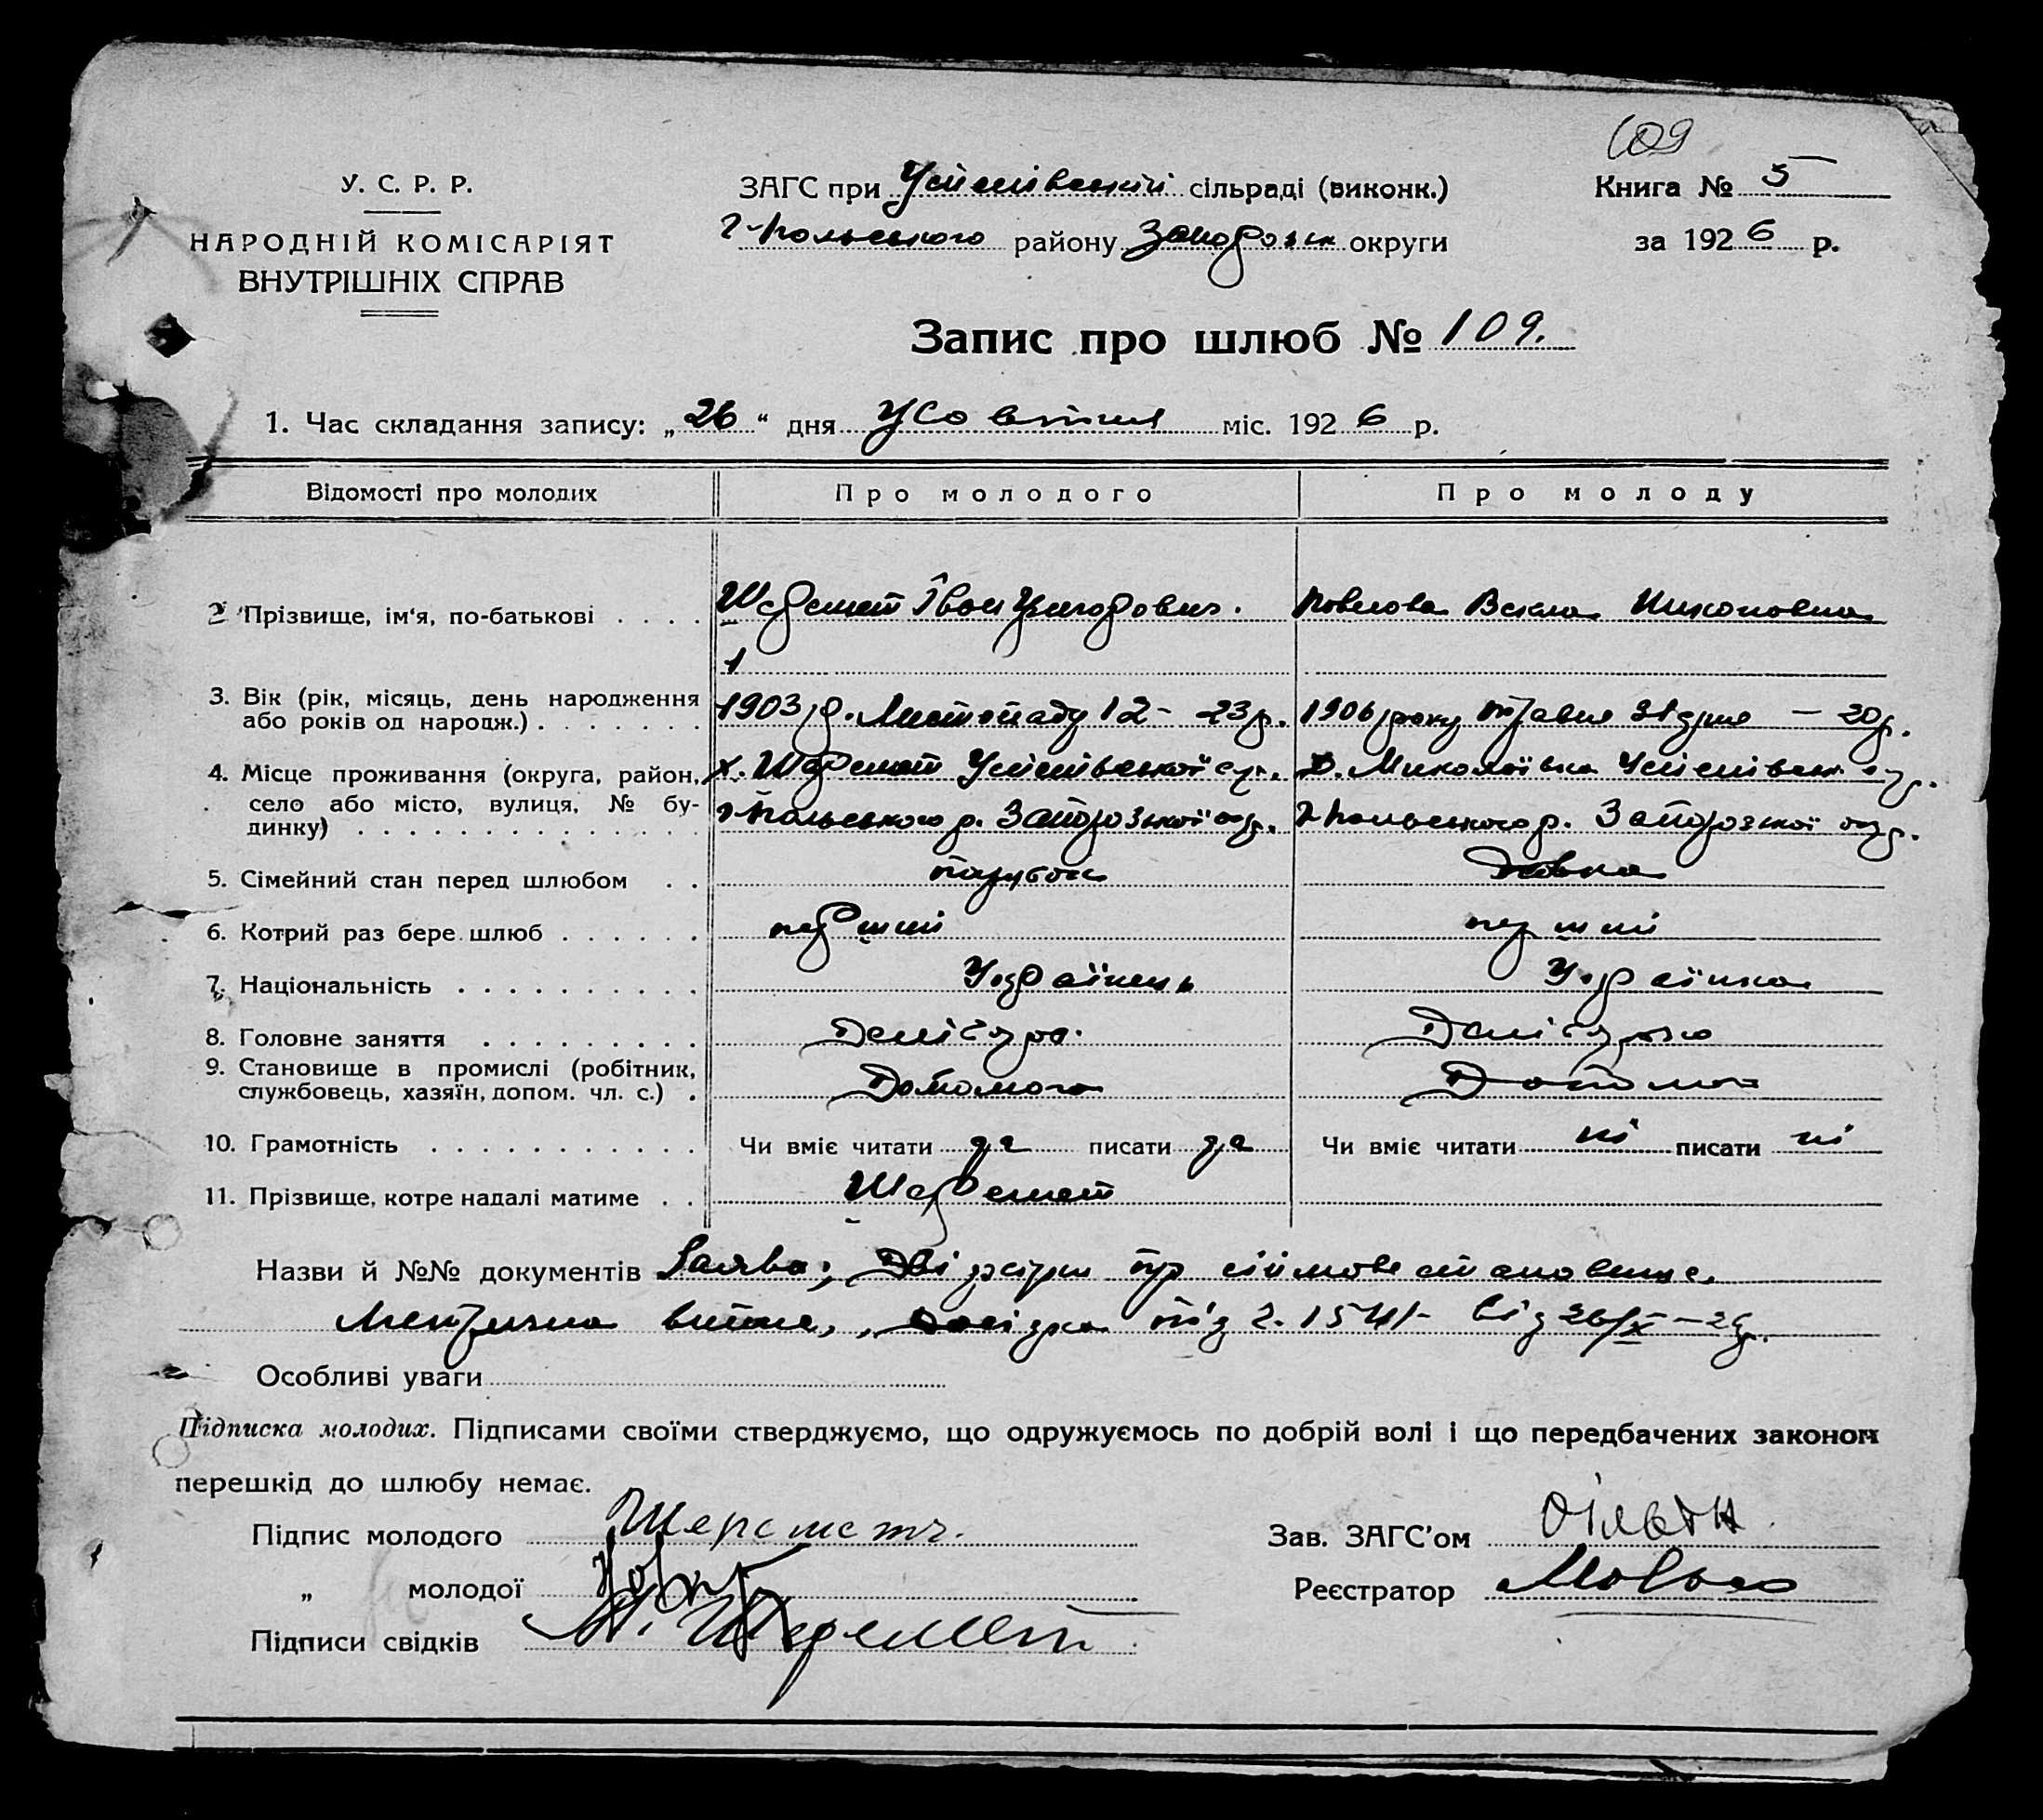 109
У. С. Р. Р.
НАРОДНІЙ КОМІСАРІЯТ
ВНУТРІШНІХ СПРАВ
ЗАГС при Успенівській сільраді (виконк.)
Г-Польського району Запорозьк округи
Книга № 5
за 1926 р.
Запис про шлюб № 109.
1. Час складання запису: „26“ дня Жовтня міс. 1926 р.
Відомості про молодих
Про молодого
Про молоду
2 Прізвище, ім'я, по-батькові . . . .
Шеремет Іван Григорович.
Павлова Векла Никоновна
1
3. Вік (рік, місяць, день народження
або років од народж.) . . . . . . .
1903 р. Листопаду 12 - 23 р.
1906 року травня 31 дня - 20 р.
4. Місце проживання (округа, район,
село або місто, вулиця, № бу-
динку) . . . . . . . . . . . . . . .
х. Шеремет Успенівської с.р.
Г-Польського р. Запорозької окр.
Миколаївка Успенівськ с.р.
Г-Польського р. Запорозької окр.
5. Сімейний стан перед шлюбом . .
парубок
дівка
6. Котрий раз бере шлюб . . . . . .
перший
перший
7. Національність . . . . . . . . . .
Українець
Українка
8. Головне заняття . . . . . . . . .
9. Становище в промислі (робітник,
службовець, хазяїн, допом. чл. с.) .
Допомога
Допомог
10. Грамотність . . . . . . . . . . .
Чи вміє читати да писати да
Чи вміє читати ні писати ні
11. Прізвище, котре надалі матиме . .
Шеремет
Назви й №№ документів Заява; Дві
Метрична витяг, Довідка під 2. 1541 від 26/X - 26 р.
Особливі уваги
Підписка молодих. Підписами своїми стверджуємо, що одружуємось по добрій волі і що передбачених законом
перешкід до шлюбу немає.
Підпис молодого Шеремет.
„ молодої
Підписи свідків Шеремет
Зав. ЗАГС'ом
Реєстратор